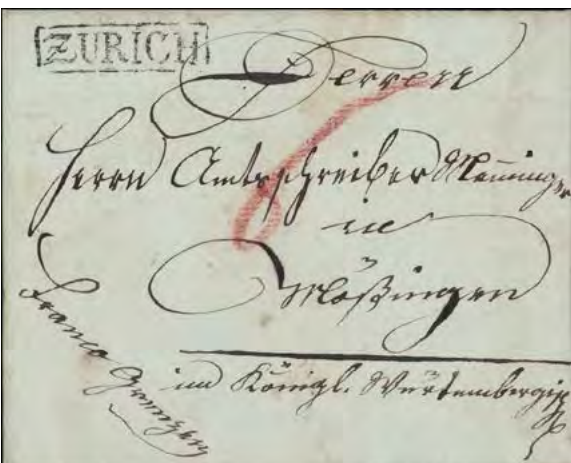 ZURICH
Herren
Herrn Amtsschreiber
in
Mößingen
im Königl. Würtembergisch
Franco Grenzen